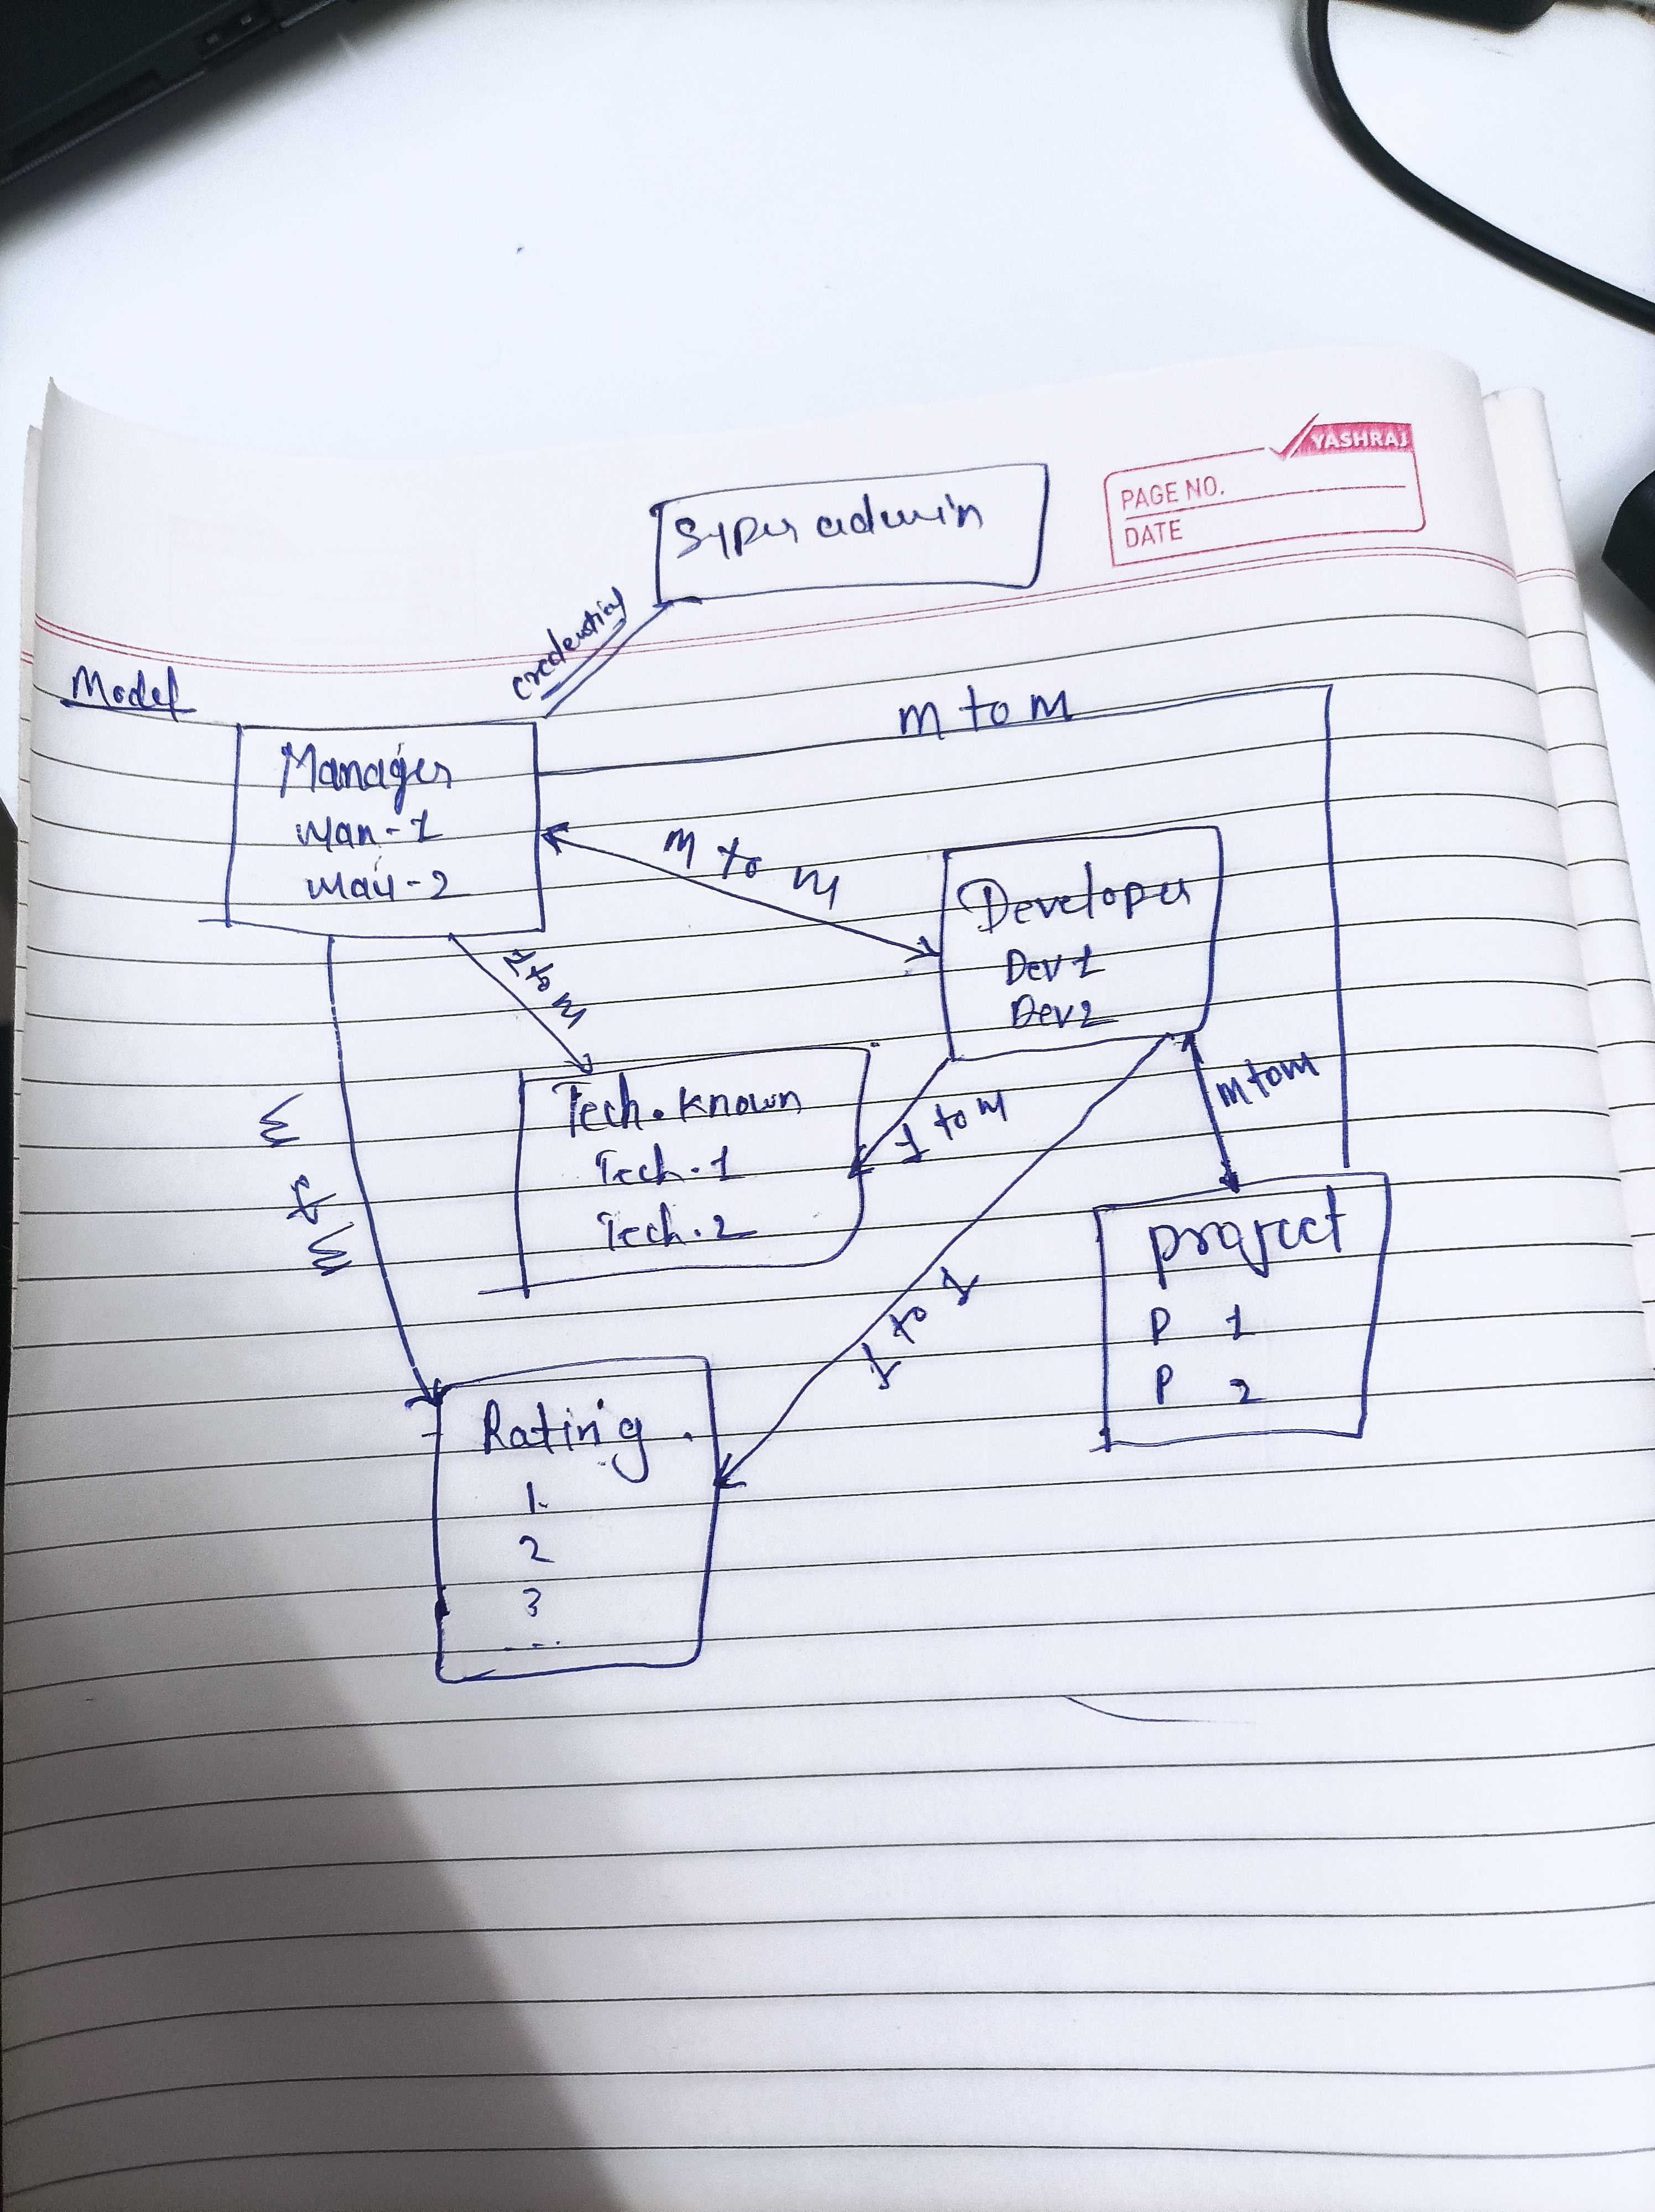 YASHRAJ
PAGE NO.
DATE
Super admin
credential
Model
m to m
Manager
Man-1
Man-2
m to m
Developer
Dev 1
Dev 2
1 to m
m to m
Tech. known
Tech. 1
Tech. 2
1 to m
m to m
project
P 1
P 2
1 to 1
Rating
1.
2
3
...